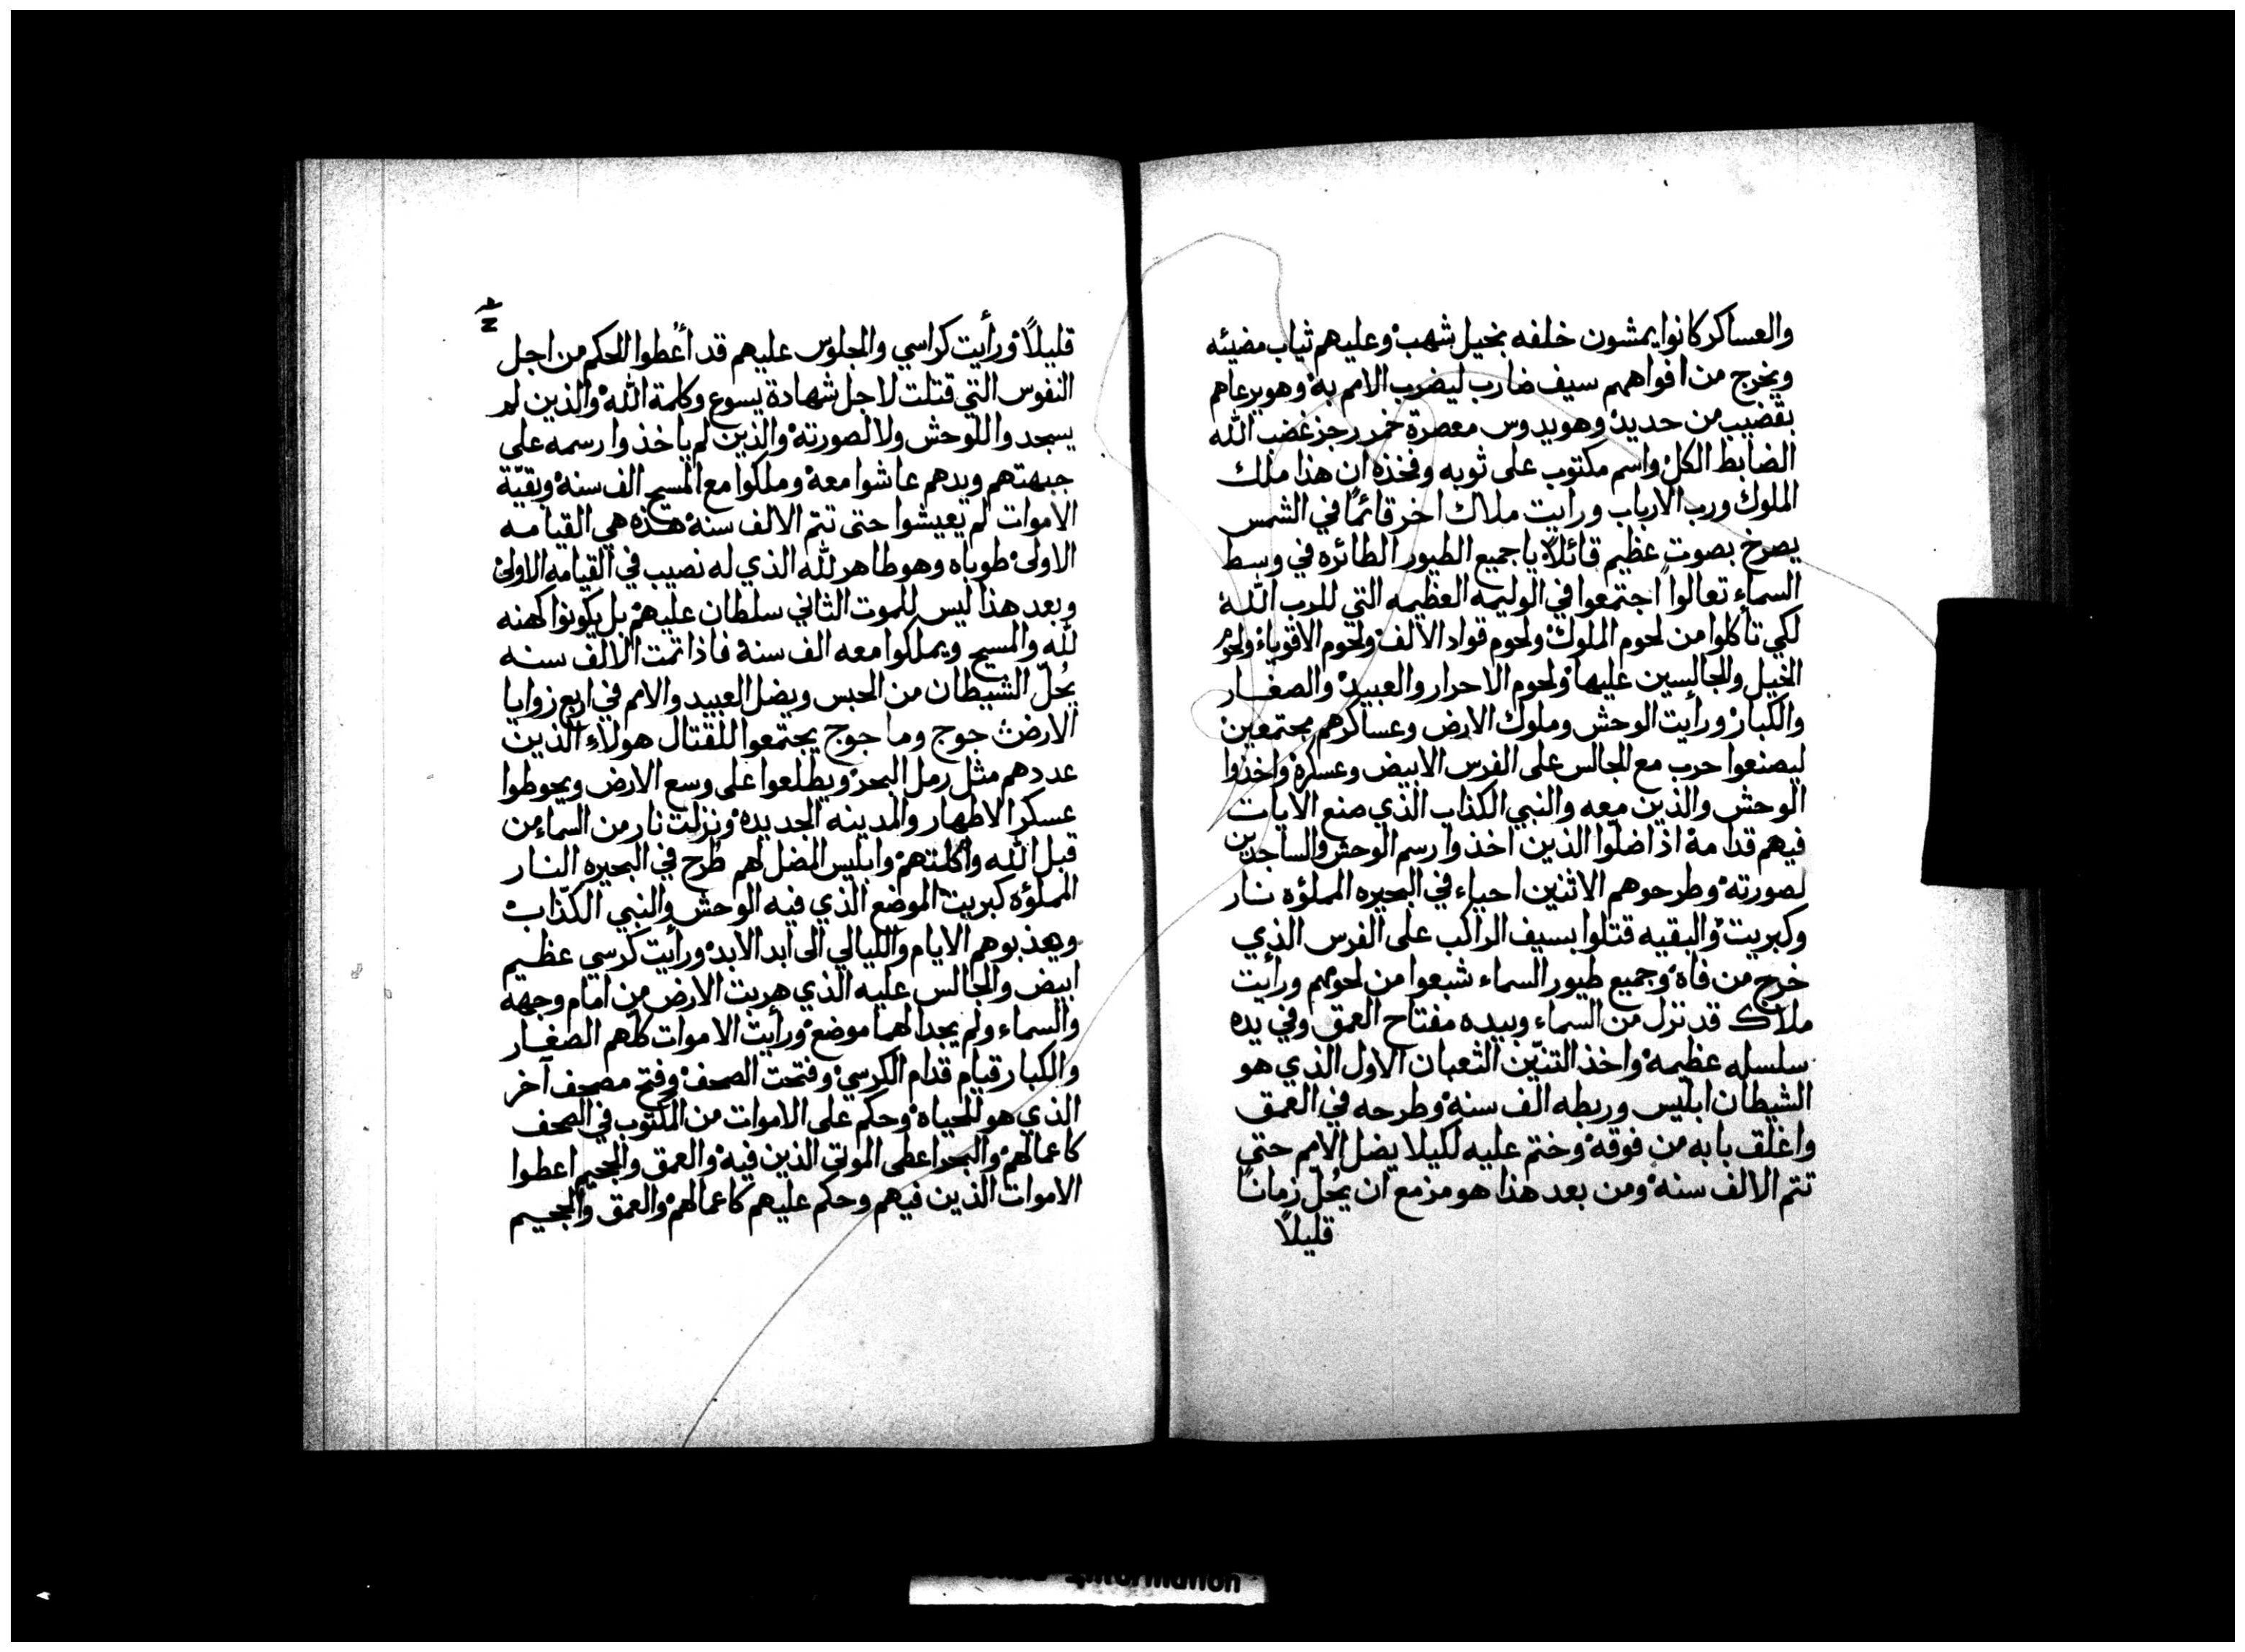 والعساكر كانوا يمشون خلفه بخيل شهب وعليهم ثياب مضيئه
ويخرج من افواههم سيف ضارب ليضرب الامم به وهو يرعاهم
بقضيب من حديد وهو يدوس معصرة خمر رجز غضب الله
الضابط الكل واسم مكتوب على ثوبه وفخذه ان هذا ملك
الملوك ورب الارباب ورايت ملاك اخر قائمًا في الشمس
يصرخ بصوت عظيم قائلًا يا جميع الطيور الطائره في وسط
السماء تعالوا اجتمعوا في الوليمه العظيمه التي للرب الله
لكي تأكلوا من لحوم الملوك ولحوم قواد الالف ولحوم الاقوياء ولحوم
الخيل والجالسين عليها ولحوم الاحرار والعبيد والصغار
والكبار ورأيت الوحش وملوك الارض وعساكرهم مجتمعين
ليصنعوا حرب مع الجالس على الفرس الابيض وعسكره واخذوا
الوحش والذين معه والنبي الكذاب الذي صنع الايات
فيهم قدامه اذ اضلوا الذين اخذوا رسم الوحش والساجدين
لصورته وطرحوهم الاثنين احياء في البحيره المملؤه نار
وكبريت والبقيه قتلوا بسيف الراكب على الفرس الذي
خرج من فاه وجميع طيور السماء شبعوا من لحومهم ورأيت
ملاك قد نزل من السماء وبيده مفتاح العمق وفي يده
سلسله عظيمه واخذ التنّين الثعبان الاول الذي هو
الشيطان ابليس وربطه الف سنه وطرحه في العمق
واغلق بابه من فوقه وختم عليه لكيلا يضل الامم حتى
تتم الالف سنه ومن بعد هذا هو مزمع ان يُحلّ زمانًا
قليلًا
قليلًا ورأيت كراسي والجلوس عليهم قد أعطوا الحكم من اجل
النفوس التي قتلت لاجل شهادة يسوع وكلمة الله والذين لم
يسجدوا للوحش ولا لصورته والذين لم ياخذوا رسمه على
جبهتهم ويدهم عاشوا معه وملكوا مع المسيح الف سنه وبقيّة
الاموات لم يعيشوا حتى تتم الالف سنه هذه هي القيامه
الاولى طوباه وهو طاهر لله الذي له نصيب في القيامه الاولى
وبعد هذا ليس للموت الثاني سلطان عليهم بل يكونوا كهنه
لله والمسيح ويملكوا معه الف سنة فاذا تمت الالف سنه
يُحلّ الشيطان من الحبس ويضل العبيد والامم في اربع زوايا
الارض جوج وماجوج يجتمعوا للقتال هولاء الذين
عددهم مثل رمل البحر ويطلعوا على وسع الارض ويحوطوا
عسكر الاطهار والمدينه الجديده ونزلت نار من السماء من
قبل الله وأكلتهم وابليس المضل لهم طُرح في البحيره النار
المملؤه كبريت الموضع الذي فيه الوحش والنبي الكذّاب
ويعذبوهم الايام والليالي الى ابد الابد ورأيت كرسي عظيم
ابيض والجالس عليه الذي هربت الارض من امام وجهه
والسماء ولم يجدا لهما موضع ورأيت الاموات كلهم الصغار
والكبار قيام قدام الكرسي وفتحت الصحف وفتح مصحف آخر
الذي هو للحياه وحكم على الاموات من المكتوب في الصحف
كاعمالهم والبحر اعطى الموتى الذين فيه والعمق والجحيم اعطوا
الاموات الذين فيهم وحكم عليهم كاعمالهم والعمق والجحيم